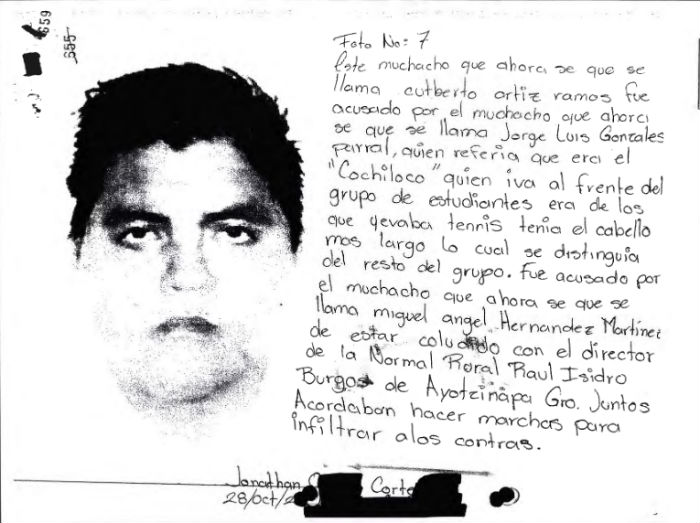 659
655
Foto No: 7
Este muchacho que ahora se que se
llama cutberto ortiz ramos fue
acusado por el muchacho que ahora
se que se llama Jorge Luis Gonzales
parral, quien referia que era el
"Cochiloco" quien iva al frente del
grupo de estudiantes era de los
que yevaba tennis tenia el cabello
mas largo lo cual se distinguia
del resto del grupo. Fue acusado por
el muchacho que ahora se que se
llama miguel angel Hernandez Martinez
de estar coludido con el director
de la Normal Rural Raul Isidro
Burgos de Ayotzinapa Gro. Juntos
Acordaban hacer marchas para
infiltrar alos contras.
Jonathan Corte
28/oct/2